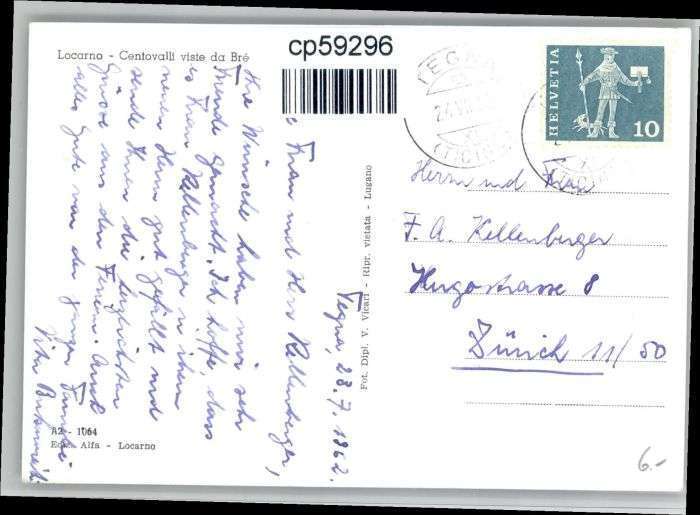 Locarno - Centovalli viste da Bré
cp59296
HELVETIA
10
TEGNA
(TICINO)
Tegna, 28.7.1962.
Frau und Herr Kellenberger,
Ihre Wünsche haben mir sehr
Freude gemacht. Ich hoffe, dass
es Frau Kellenberger in ihrem
neuen Heim gut gefällt und
sende Ihnen die herzlichsten
Grüsse aus den Ferien. Auch
alles Gute von der ganzen Familie
Ihr
Fot. Dipl. V. Vicari - Ripr. vietata - Lugano
Herrn und Frau
F. A. Kellenberger
Hugostrasse 8
Zürich 11/50
A2 - 1064
Ediz. Alfa - Locarno
6.-